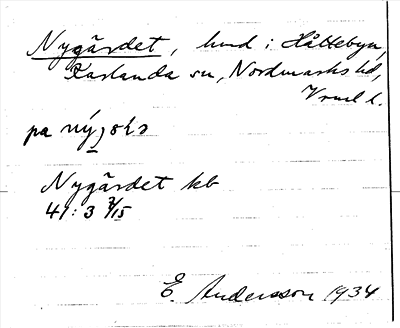 Nygärdet, hmd i Håltebyn,
Karlanda sn, Nordmarks hd,
Vrml l.
pa
Nygärdet kb
41:3
E. Andersson 1934